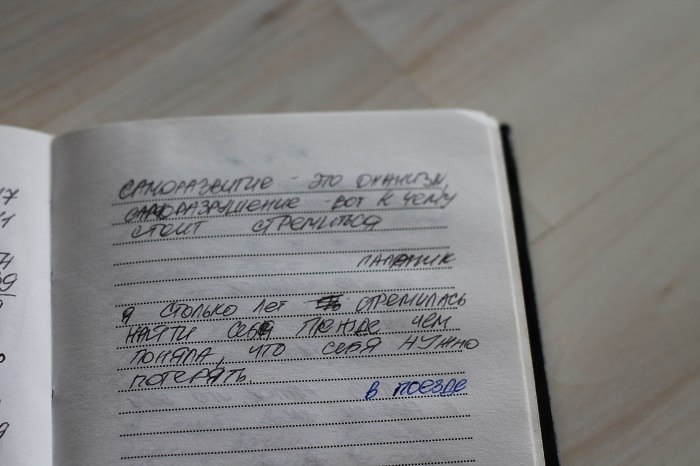 17
1
9
САМОРАЗВИТИЕ - ЭТО ОНАНИЗМ,
САМОРАЗРУШЕНИЕ - ВОТ К ЧЕМУ
СТОИТ СТРЕМИТЬСЯ
ПАЛАНИК
Я СТОЛЬКО ЛЕТ СТРЕМИЛАСЬ
НАЙТИ СЕБЯ ПРЕЖДЕ ЧЕМ
ПОНЯЛА, ЧТО СЕБЯ НУЖНО
ПОТЕРЯТЬ.
В ПОЕЗДЕ